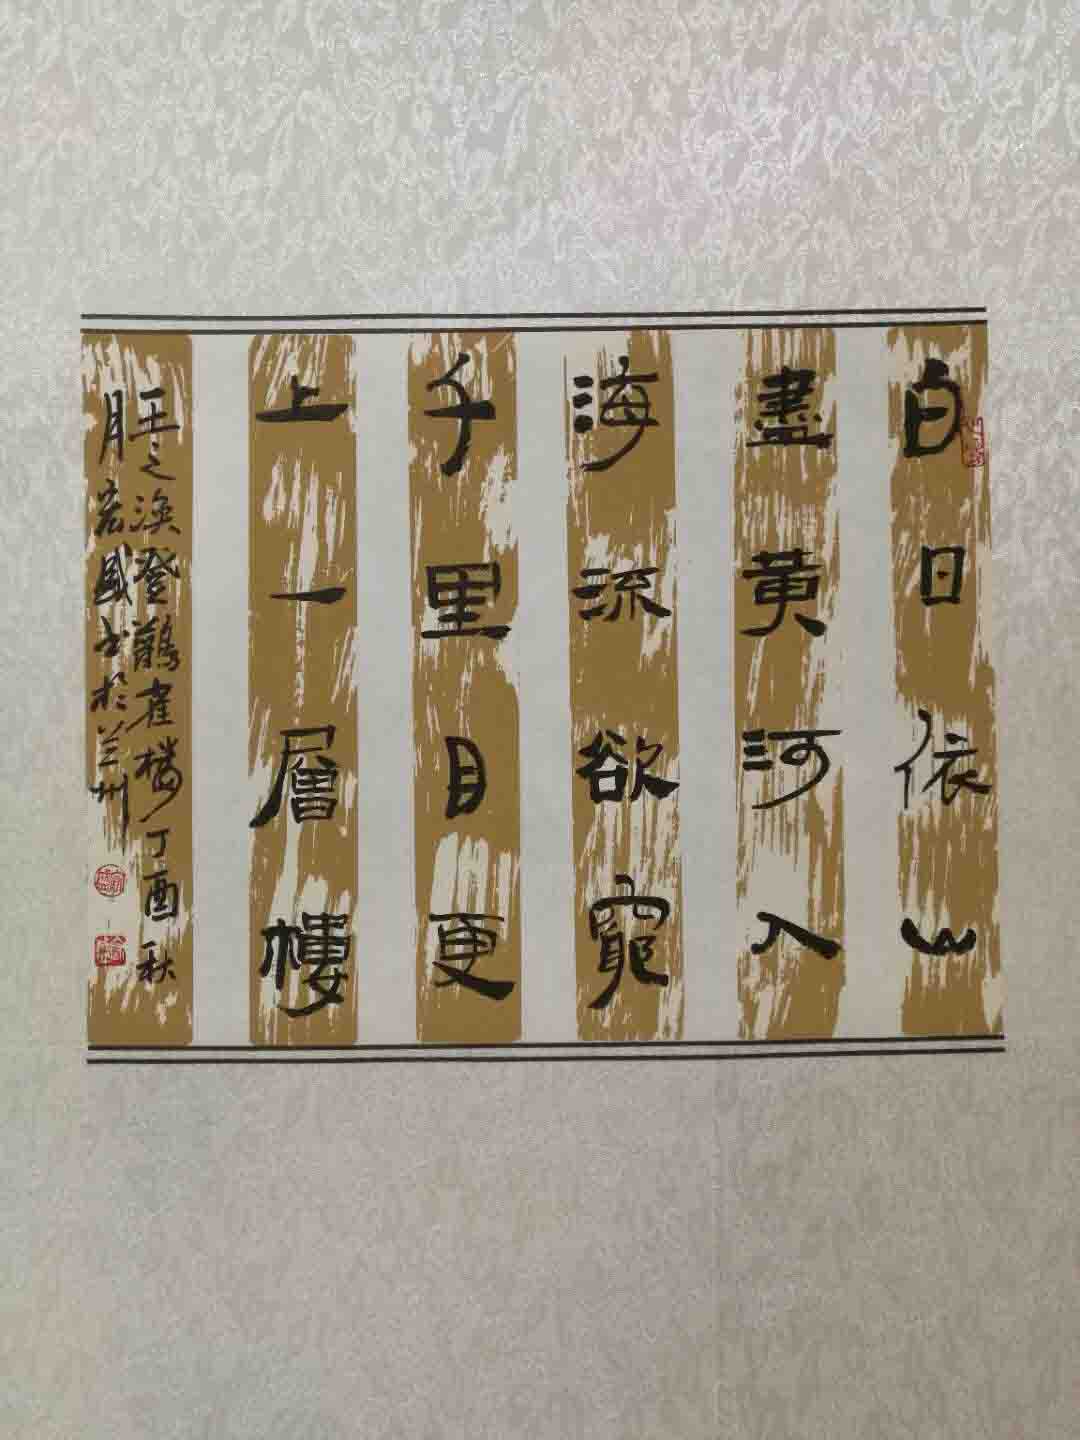 白日依山
盡黃河入
海流欲窮
千里目更
上一層樓
王之渙登鸛雀楼丁酉秋
月宏國书於兰州